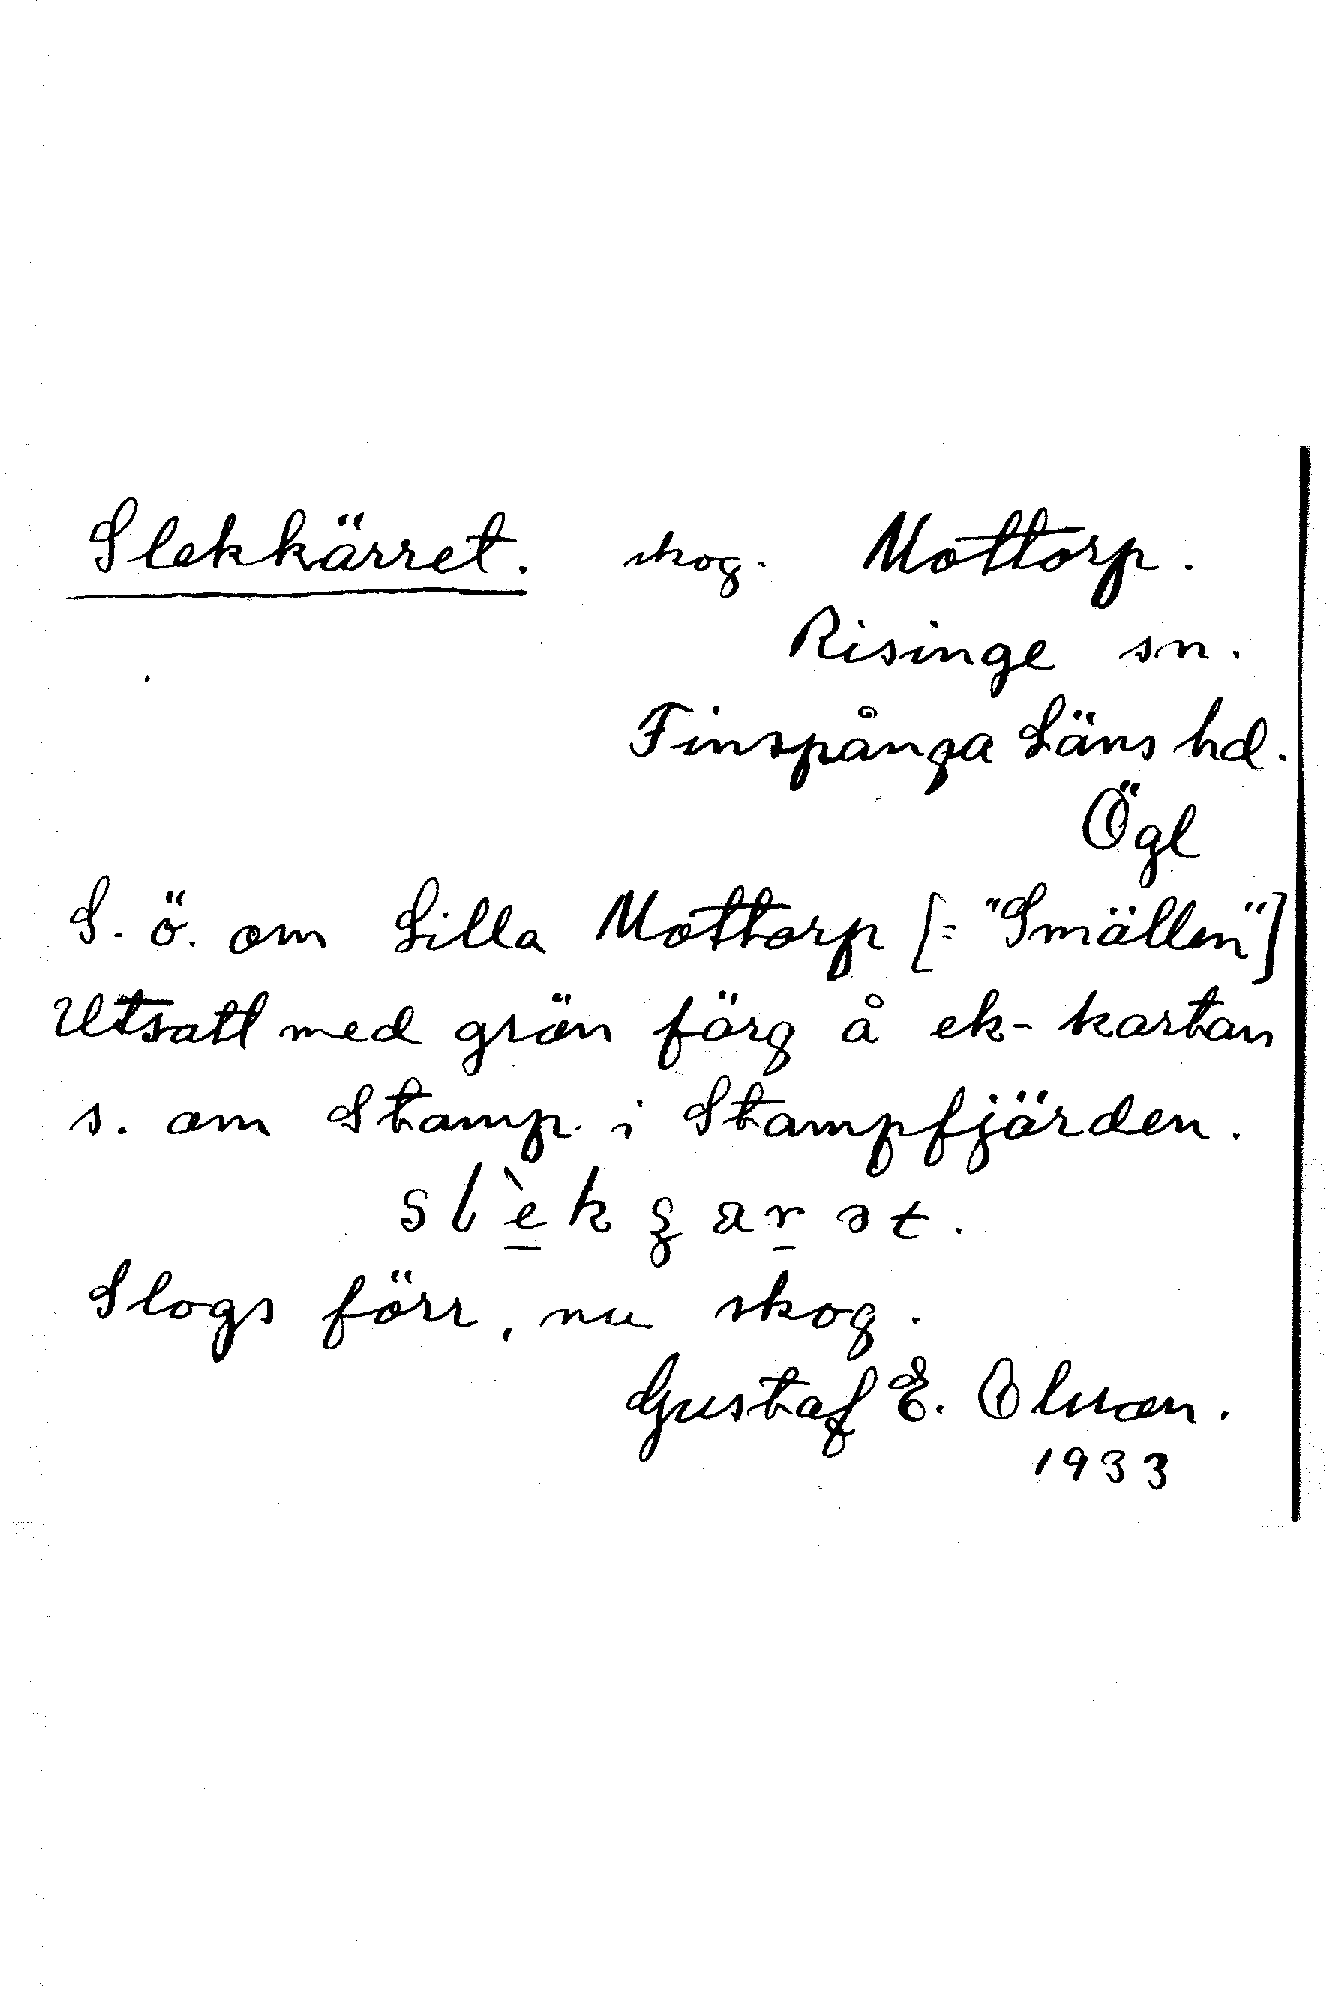 Slekkärret. skog. Mottorp.
Risinge sn.
Finspånga Läns hd.
Ögl
S. ö. om Lilla Mottorp [= "Smällen"]
Utsatt med grön färg å ek-kartan
s. om Stamp i Stampfjärden.
slèkʒarət.
Slogs förr, nu skog.
Gustaf E. Olsson.
1933